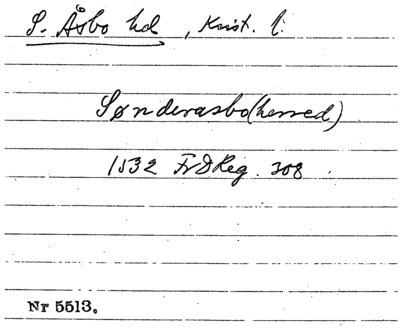 S. Åsbo hd, Krist. l:
Sønderasbo (herred)
1532 Fr I Reg. 308.
Nr 5513.